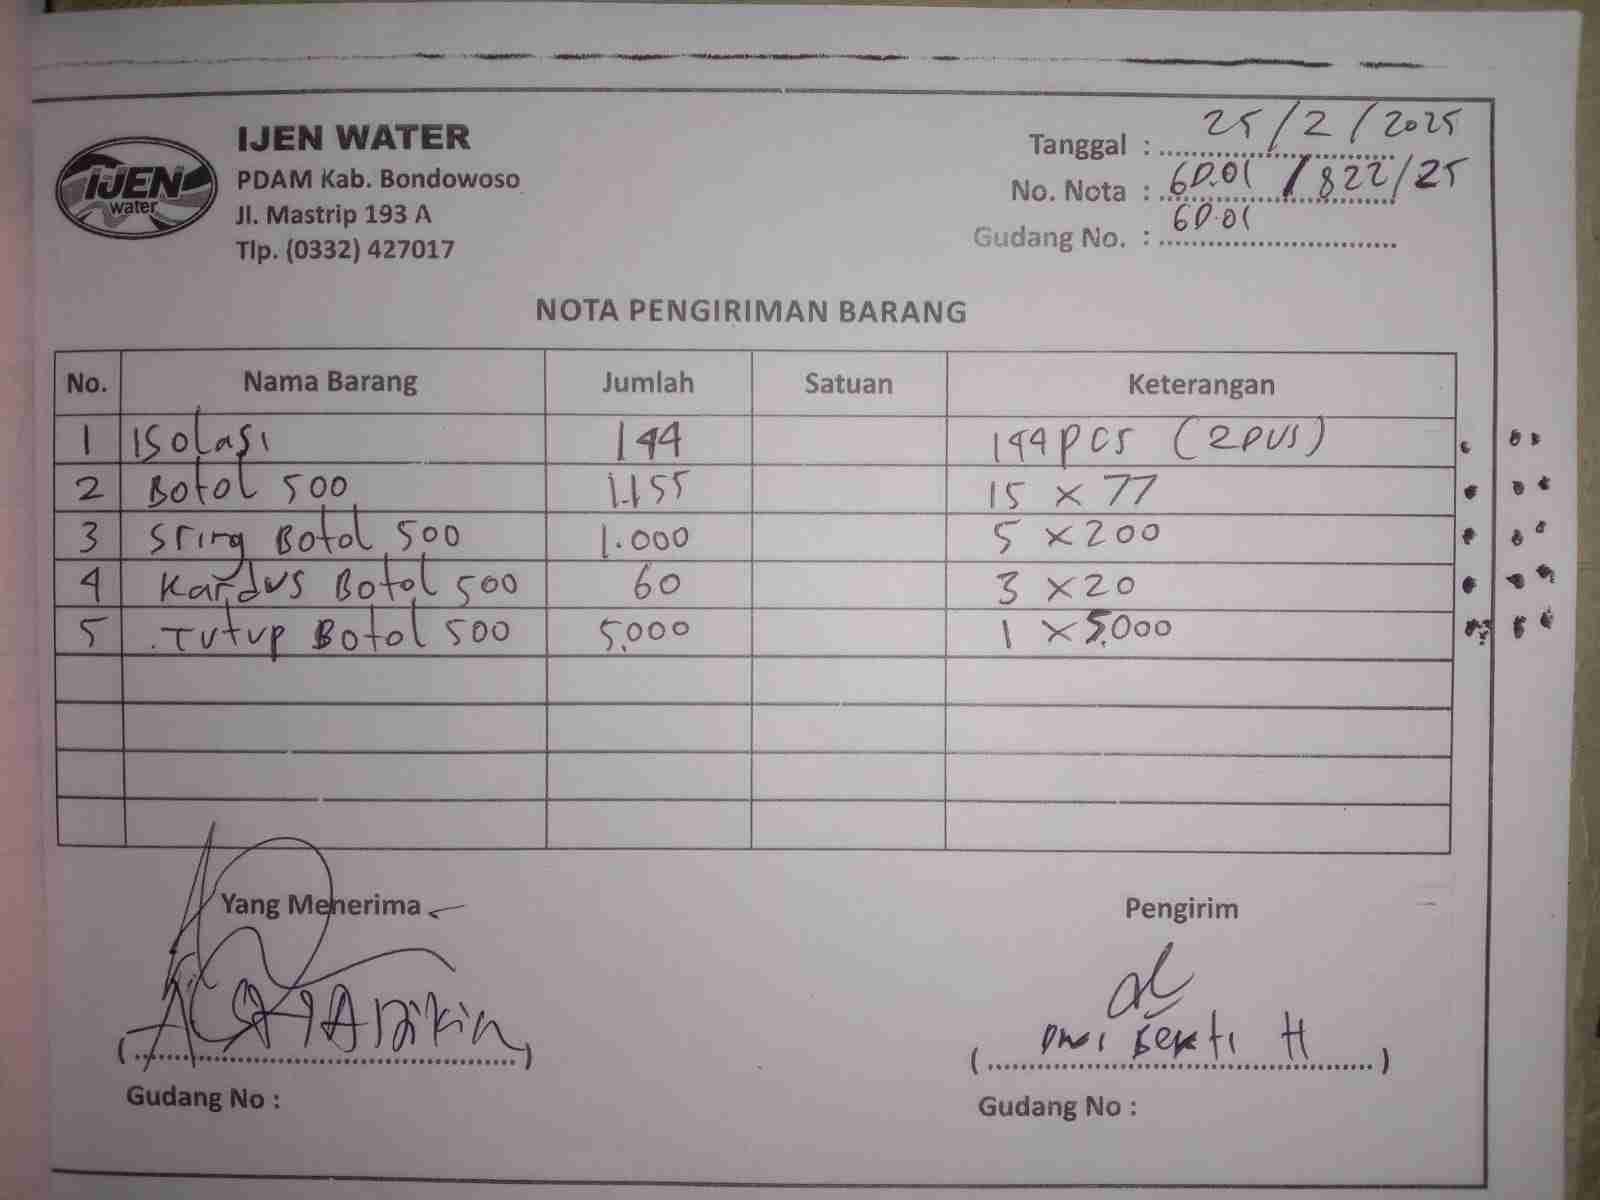 IJEN WATER
PDAM Kab. Bondowoso
Jl. Mastrip 193 A
Tlp. (0332) 427017
IJEN
water
Tanggal : 25/2/2025
No. Nota : 6D.01/822/25
Gudang No. : 6D.01
NOTA PENGIRIMAN BARANG
No. Nama Barang Jumlah Satuan Keterangan
1 Isolasi 144 144 pcs (2 DUS)
2 Botol 500 1.155 15 x 77
3 Sring Botol 500 1.000 5 x 200
4 Kardus Botol 500 60 3 x 20
5 Tutup Botol 500 5.000 1 x 5.000
Yang Menerima Pengirim
Dwi Bekti H
Gudang No : Gudang No :